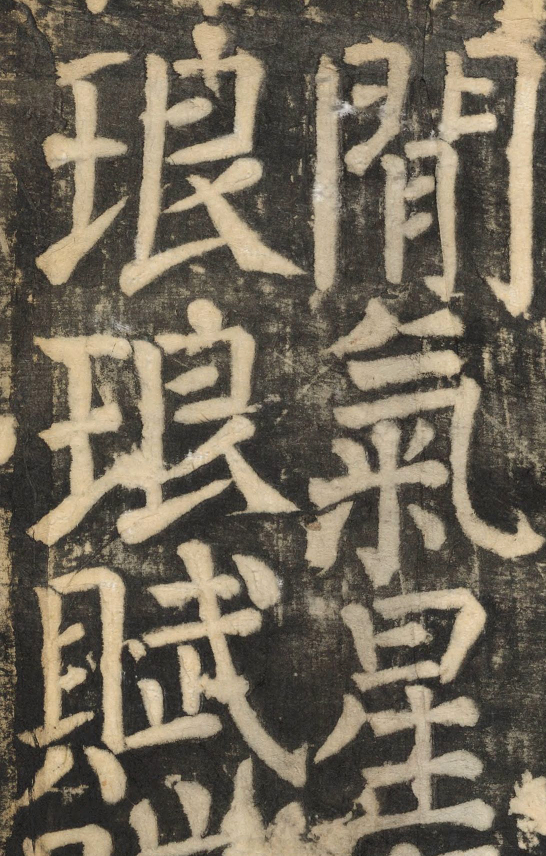 閒氣星
琅琅賦